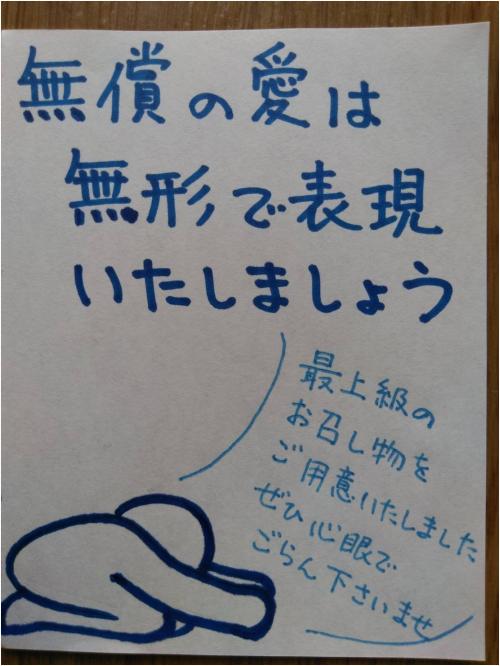 無償の愛は
無形で表現
いたしましょう
最上級の
お召し物を
ご用意いたしました
ぜひ心眼で
ごらん下さいませ